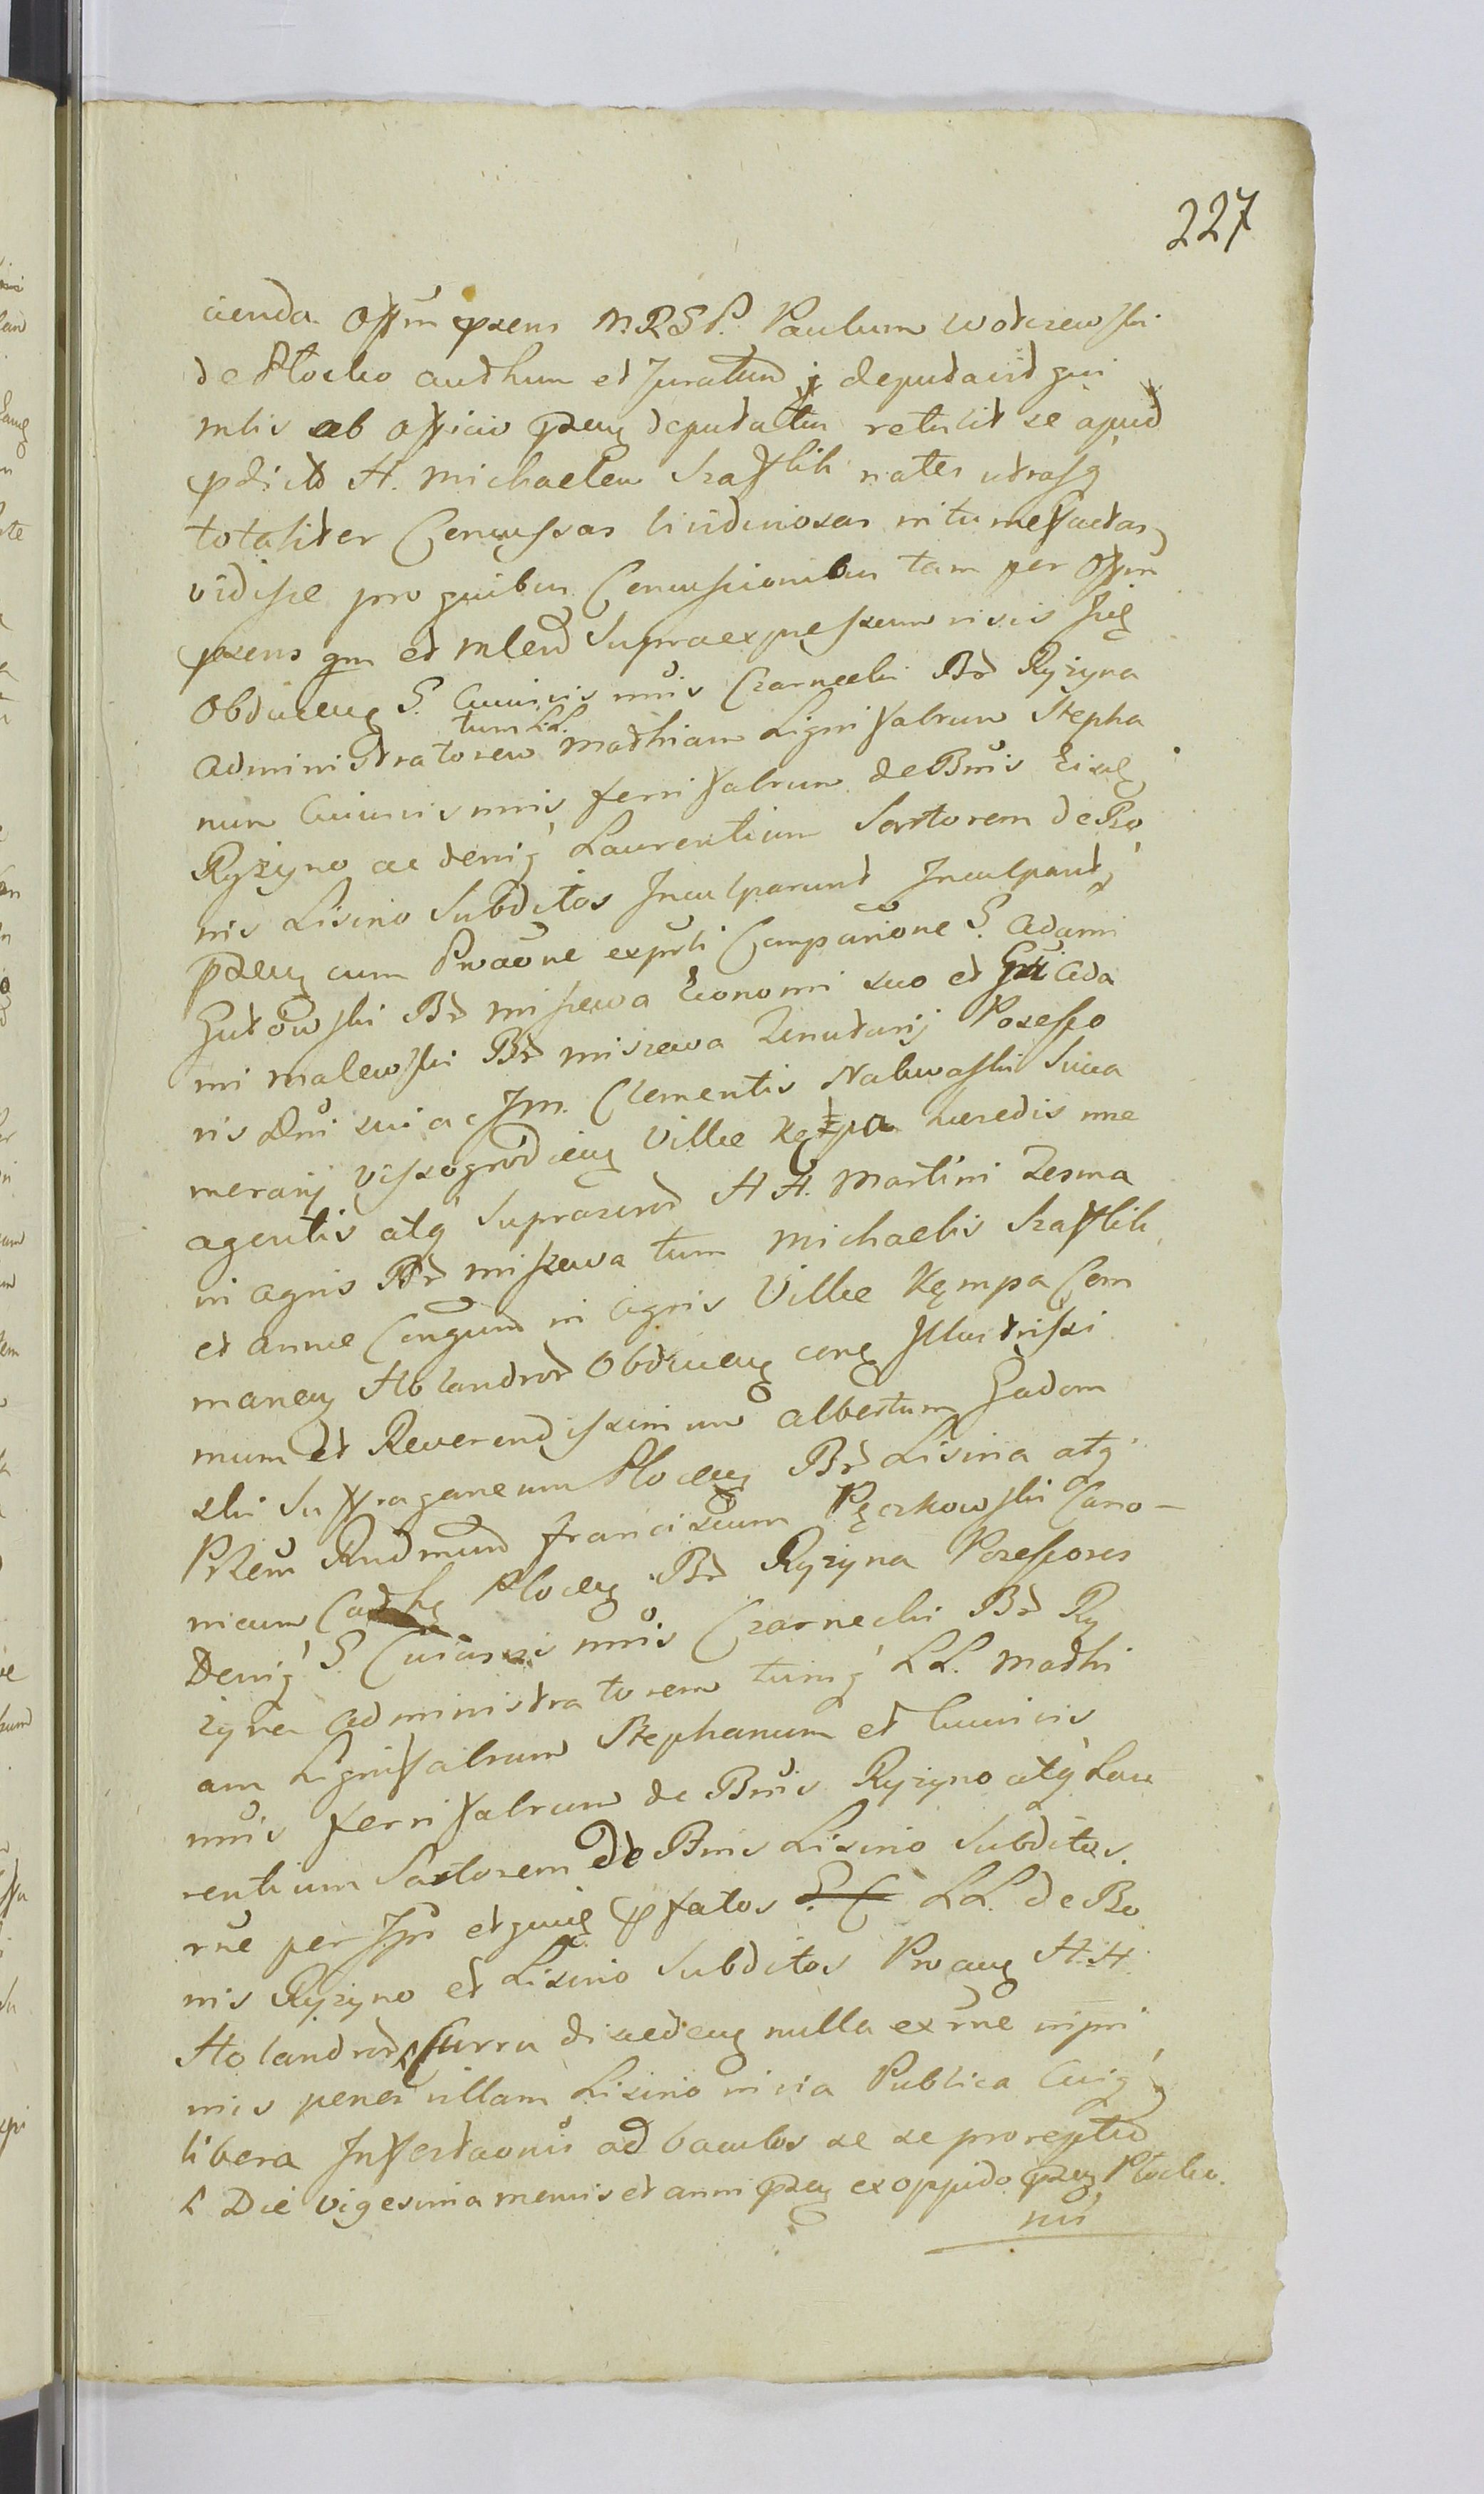 227
cienda Offm pxens M. R. S. P. Paulum Wotrzewski
de Plocko authum et Juratum deputavit qui
mlis ab officio pxeng deputatus retulit se apud
pdicto H. Michaelem Szafflik nates utrasq
totaliter Concussas liudinosas intumefactas
vidisse pro quibus Concussionibus tam per Offm
pxens qm et mlem supraexpressum visis sicq
Obduceng S. Cuiusvis nnis Czarnecki Br Ryzyna
tum LL.
Administratorem Mathiam Lignifabrum Stepha
num Cuiusvis nnis ferrifabrum de Bnis Eisdq
Ryżyno ac deniq Laurentium Sartorem de Bo
nis Lisino Subditos Inculparunt Inculpantq
pxeng cum Proaone exprti Comparione S. Adami
Gutowski Br Miszewa Economi suo et Gsi Ada
mi Malewski Br Miszewa Tenutarij Possesso
ris Dni sui ac Jm. Clementis Nakwaski Succa
merarij Vissogrodieng Villae Kępa haeredis nne
agentis atq suprascrod HH. Martini Zesma
in agris Br Miszewa tum Michaelis Szafflik
et annae Congum in agris Villae Kępmpa Com
maneng Holandror Obduceng conq Illustrissi
mum et Reverendissimum albertum Gadom
ski Suffraganeum Ploceng Br Lisina atq
Pttem Rndmum Franciscum Pęczkowski Cano-
nicum Cathq Ploceng Br Ryzyna Possessores
Deniq S. Cuiusvis nnis Czarnecki Br Ry
zyna Administratorem tumq LL. Mathi
am Lignifabrum Stephanum et Cuiusvis
nnis ferrifabrum de Bnis Ryzyno atq Lau
rentium Sartorem de Bnis Lisino Subditos.
rne per Jpn et quieq pfatos LL. de Bo
nis Ryzyno et Lisino Subditos Proang H.H.
Holandror Curru discedeng nulla ex rne inpri
mis penes villam Lisino in via Publica Cuiq
libera Infestaonis ad baculos se se proreptio
L Die vigesima mensis et anni pxeng ex oppido pxeng Plocko.
nis